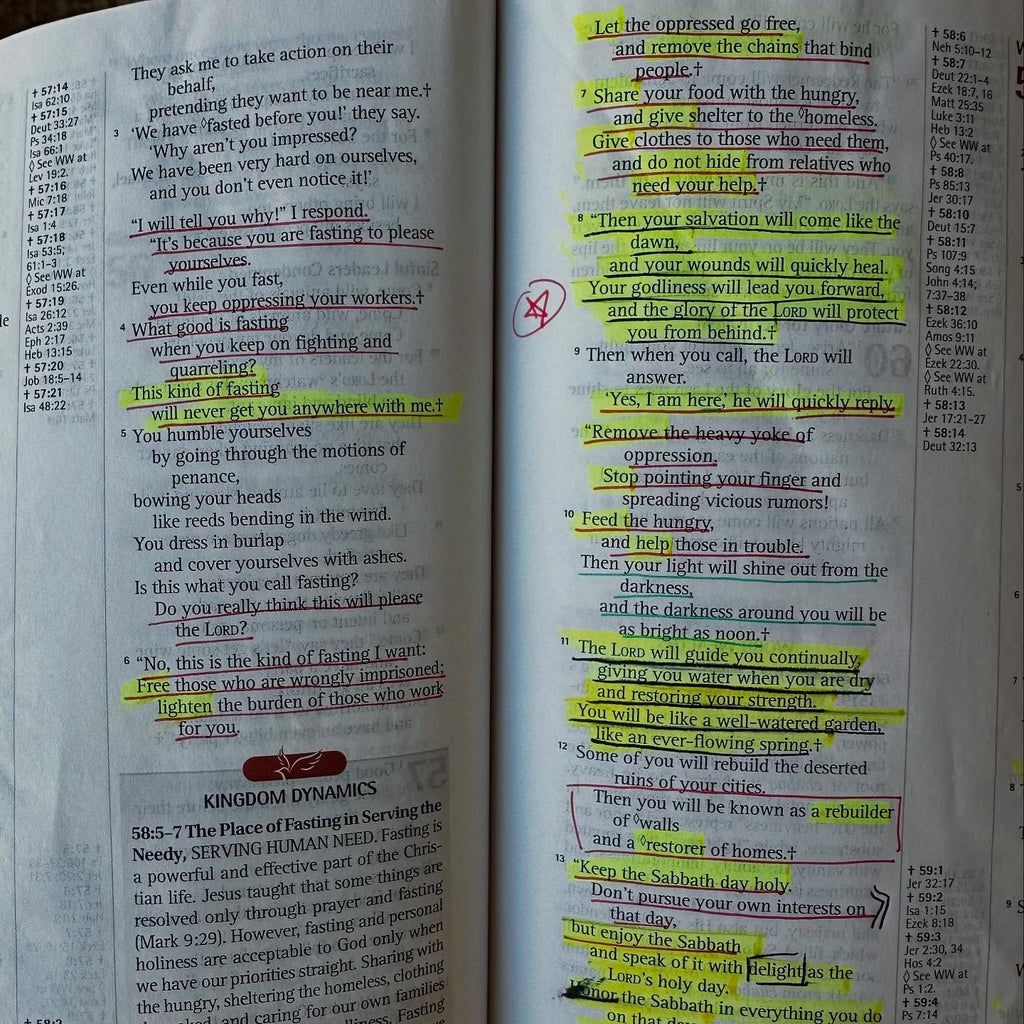 They ask me to take action on their
behalf,
pretending they want to be near me.†
3 ‘We have ◊fasted before you!’ they say.
‘Why aren’t you impressed?
We have been very hard on ourselves,
and you don’t even notice it!’
“I will tell you why!” I respond.
“It’s because you are fasting to please
yourselves.
Even while you fast,
you keep oppressing your workers.†
4 What good is fasting
when you keep on fighting and
quarreling?
This kind of fasting
will never get you anywhere with me.†
5 You humble yourselves
by going through the motions of
penance,
bowing your heads
like reeds bending in the wind.
You dress in burlap
and cover yourselves with ashes.
Is this what you call fasting?
Do you really think this will please
the LORD?
6 “No, this is the kind of fasting I want:
Free those who are wrongly imprisoned;
lighten the burden of those who work
for you.
† 57:14
Isa 62:10
† 57:15
Deut 33:27
Ps 34:18
Isa 66:1
◊ See WW at
Lev 19:2.
† 57:16
Mic 7:18
† 57:17
Isa 1:4
† 57:18
Isa 53:5;
61:1–3
◊ See WW at
Exod 15:26.
† 57:19
Isa 26:12
Acts 2:39
Eph 2:17
Heb 13:15
† 57:20
Job 18:5–14
† 57:21
Isa 48:22
KINGDOM DYNAMICS
58:5–7 The Place of Fasting in Serving the
Needy, SERVING HUMAN NEED. Fasting is
a powerful and effective part of the Chris-
tian life. Jesus taught that some things are
resolved only through prayer and fasting
(Mark 9:29). However, fasting and personal
holiness are acceptable to God only when
we have our priorities straight. Sharing with
the hungry, sheltering the homeless, clothing
and caring for our own families
Fasting
Let the oppressed go free,
and remove the chains that bind
people.†
7 Share your food with the hungry,
and give shelter to the ◊homeless.
Give clothes to those who need them,
and do not hide from relatives who
need your help.†
8 “Then your salvation will come like the
dawn,
and your wounds will quickly heal.
Your godliness will lead you forward,
and the glory of the LORD will protect
you from behind.†
9 Then when you call, the LORD will
answer.
‘Yes, I am here,’ he will quickly reply.
“Remove the heavy yoke of
oppression.
Stop pointing your finger and
spreading vicious rumors!
10 Feed the hungry,
and help those in trouble.
Then your light will shine out from the
darkness,
and the darkness around you will be
as bright as noon.†
11 The LORD will guide you continually,
giving you water when you are dry
and restoring your strength.
You will be like a well-watered garden,
like an ever-flowing spring.†
12 Some of you will rebuild the deserted
ruins of your cities.
Then you will be known as a rebuilder
of ◊walls
and a ◊restorer of homes.†
13 “Keep the Sabbath day holy.
Don’t pursue your own interests on
that day,
but enjoy the Sabbath
and speak of it with delight as the
LORD’s holy day.
Honor the Sabbath in everything you do
on that day
† 58:6
Neh 5:10–12
† 58:7
Deut 22:1–4
Ezek 18:7, 16
Matt 25:35
Luke 3:11
Heb 13:2
◊ See WW at
Ps 40:17.
† 58:8
Ps 85:13
Jer 30:17
† 58:10
Deut 15:7
† 58:11
Ps 107:9
Song 4:15
John 4:14;
7:37–38
† 58:12
Ezek 36:10
Amos 9:11
◊ See WW at
Ezek 22:30.
◊ See WW at
Ruth 4:15.
† 58:13
Jer 17:21–27
† 58:14
Deut 32:13
† 59:1
Jer 32:17
† 59:2
Isa 1:15
Ezek 8:18
† 59:3
Jer 2:30, 34
Hos 4:2
◊ See WW at
Ps 1:2.
† 59:4
Ps 7:14